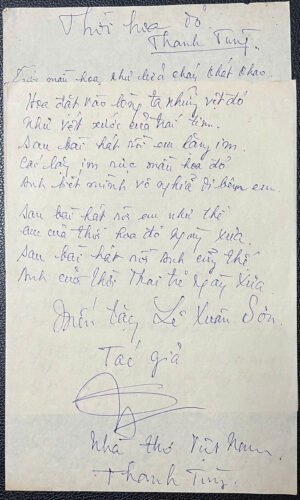 Thời hoa đỏ
Thanh Tùng.
Dưới màu hoa như lửa cháy khát khao
Hoa đặt vào lòng ta những vệt đỏ
Như vết xước của trái tim.
Sau bài hát rồi em lặng im.
Cái lặng im rực màu hoa đỏ
Anh biết mình vô nghĩa đi bên em
Sau bài hát rồi em như thể
em của thời hoa đỏ ngày xưa.
Sau bài hát rồi anh cũng thế
Anh của thời trai trẻ ngày xưa
Mến tặng Lê Xuân Sơn
Tác giả
Nhà thơ Việt Nam
Thanh Tùng